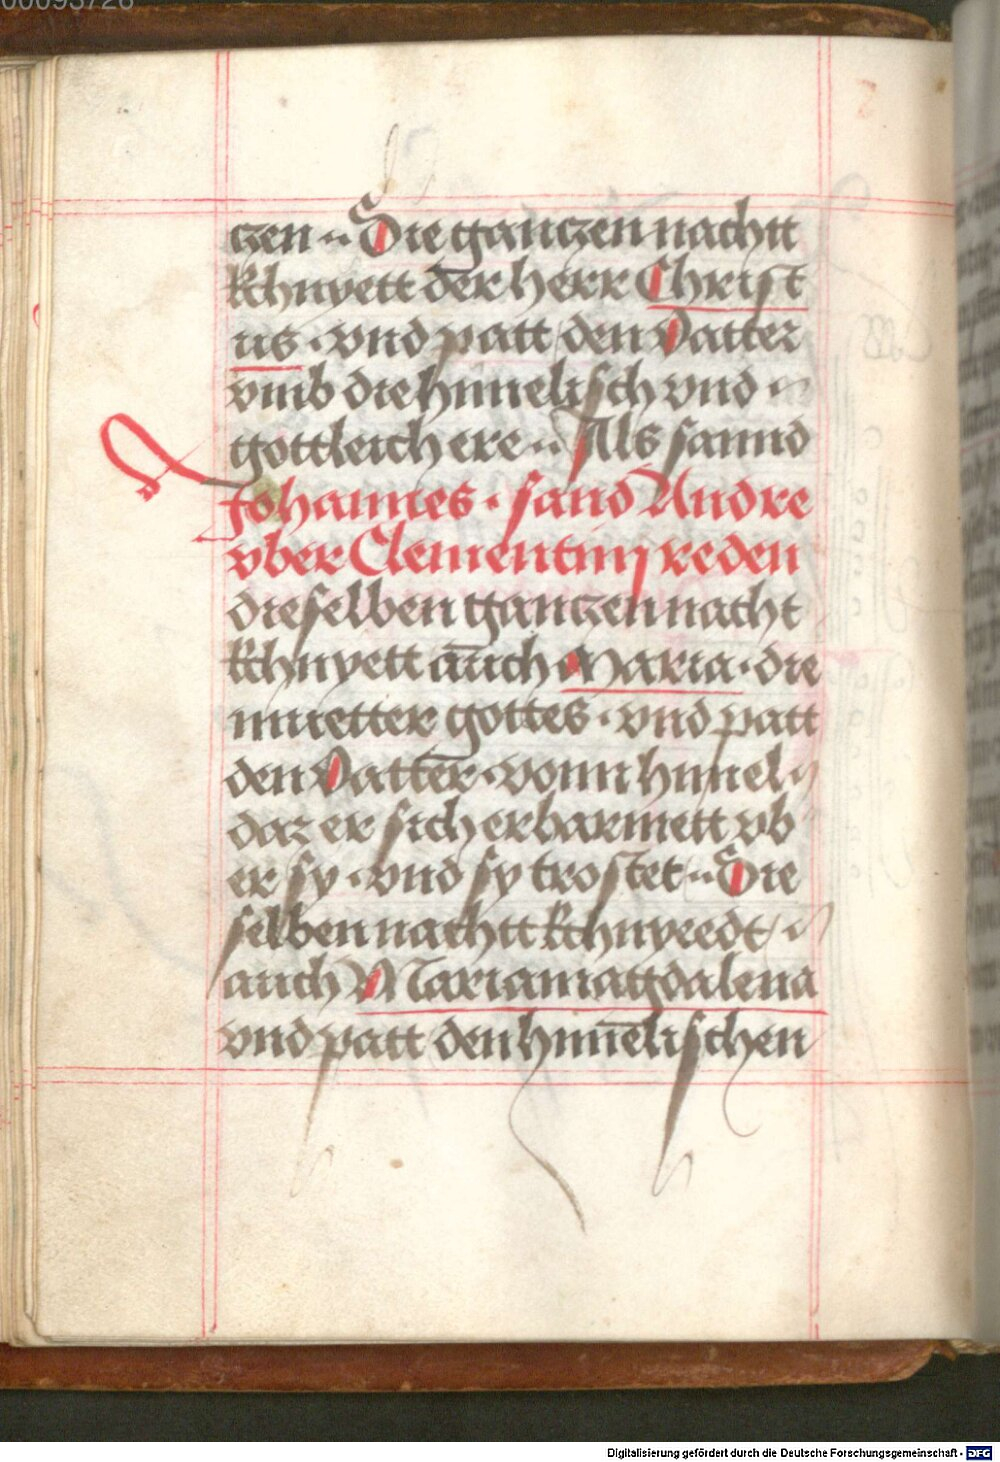 00093726
czen ·· Die ganczen nachtt
kchnyett der herr Christ
us · vnd patt den Vatter
vmb die himelisch vnd
gottleich ere ·· Als sannd
Johannes · sand Andre
vber Clementim reden
dieselben ganczen nacht
kchnyett auch Maria · die
muetter gottes · vnd patt
den Vatter · vonn himel ·
daz er sich erbarmett vb
er sy · vnd sy trostet ·· Die
selben nachtt kchnyeedt ·
auch Mariamagdalena
vnd patt den himelischen
Digitalisierung gefördert durch die Deutsche Forschungsgemeinschaft - DFG